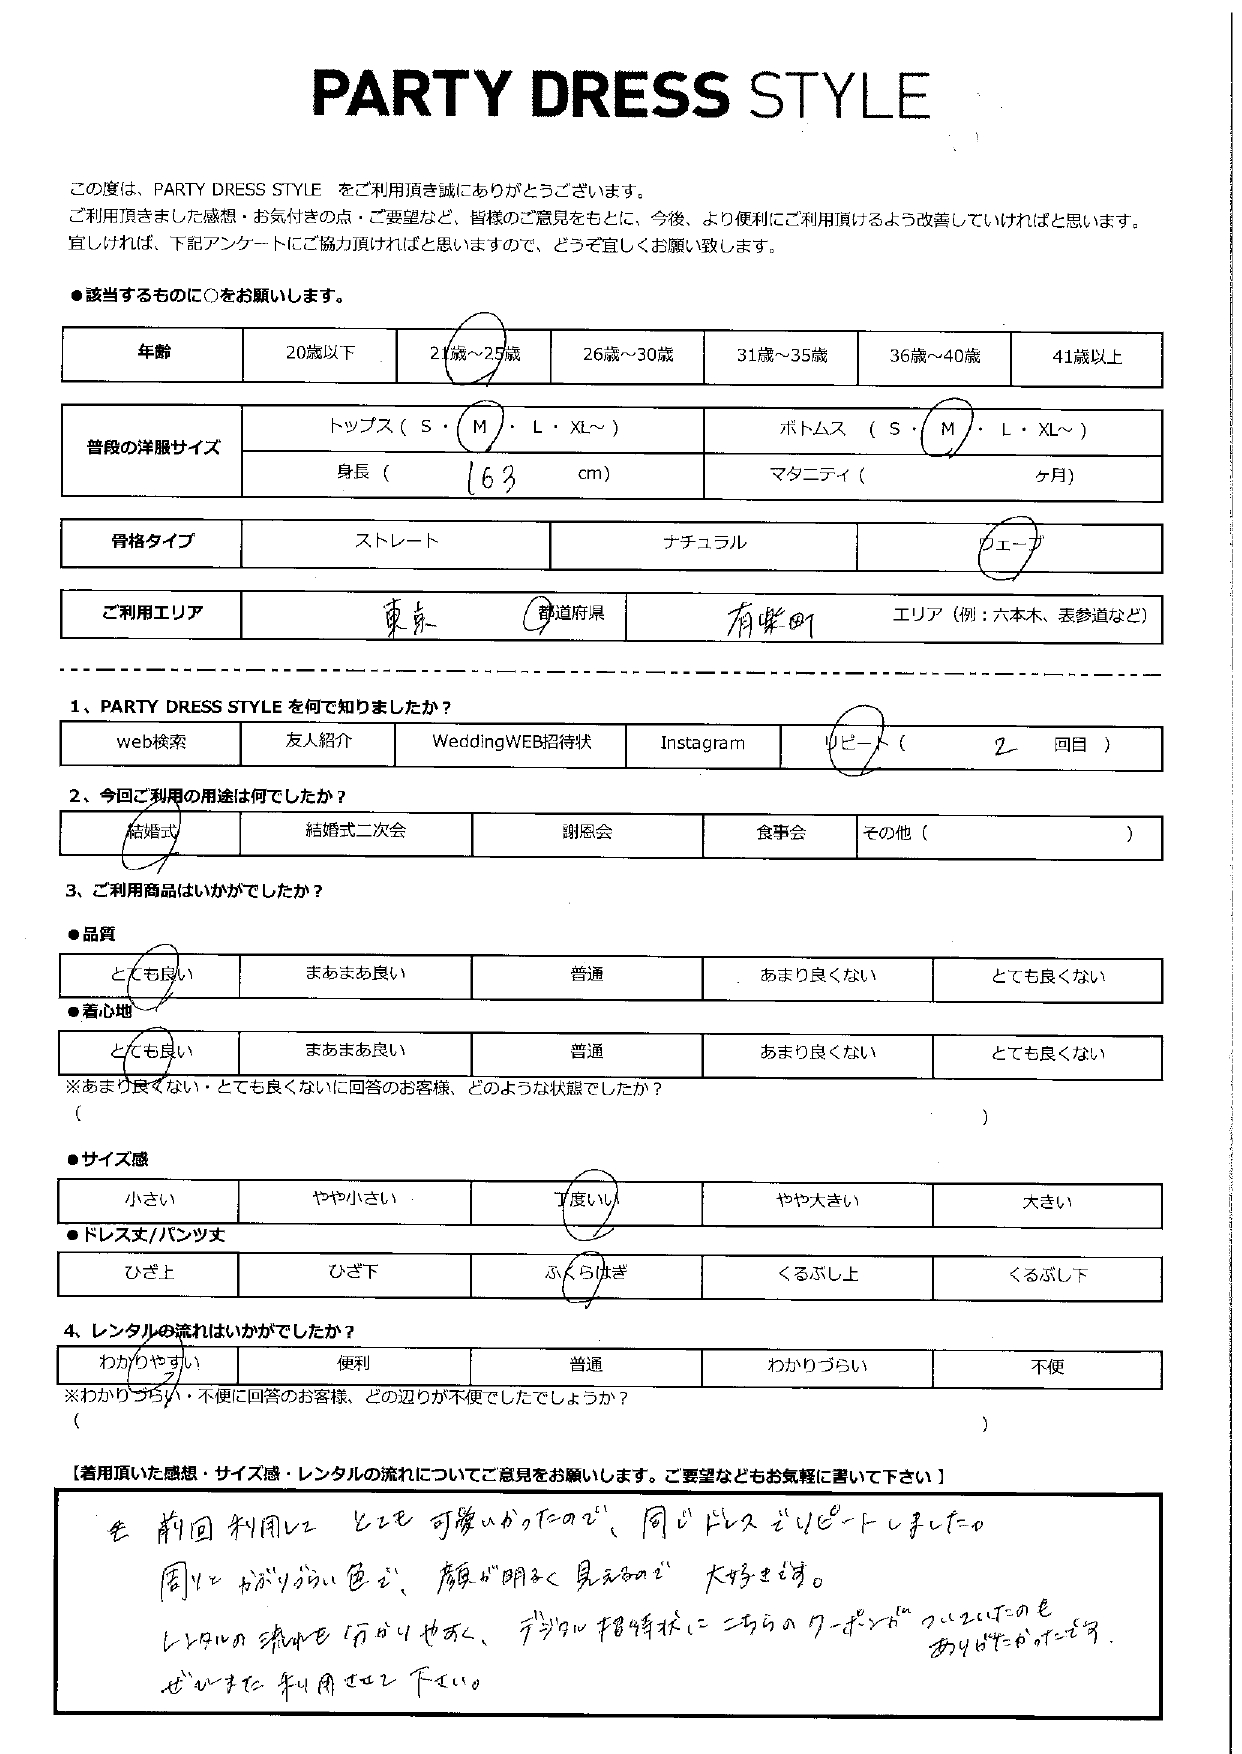 PARTY DRESS STYLE
この度は、PARTY DRESS STYLE をご利用頂き誠にありがとうございます。
ご利用頂きました感想・お気付きの点・ご要望など、皆様のご意見をもとに、今後、より便利にご利用頂けるよう改善していければと思います。
宜しければ、下記アンケートにご協力頂ければと思いますので、どうぞ宜しくお願い致します。
●該当するものに〇をお願いします。
年齢 20歳以下 21歳～25歳 26歳～30歳 31歳～35歳 36歳～40歳 41歳以上
普段の洋服サイズ トップス ( S ・ M ・ L ・ XL～ ) ボトムス ( S ・ M ・ L ・ XL～ )
身長 ( 163 cm) マタニティ ( ケ月)
骨格タイプ ストレート ナチュラル ウェーブ
ご利用エリア 東京 都道府県 有楽町 エリア（例：六本木、表参道など）
1、PARTY DRESS STYLE を何で知りましたか？
web検索 友人紹介 WeddingWEB招待状 Instagram リピート ( 2 回目 )
2、今回ご利用の用途は何でしたか？
結婚式 結婚式二次会 謝恩会 食事会 その他 ( )
3、ご利用商品はいかがでしたか？
●品質
とても良い まあまあ良い 普通 あまり良くない とても良くない
●着心地
とても良い まあまあ良い 普通 あまり良くない とても良くない
※あまり良くない・とても良くないに回答のお客様、どのような状態でしたか？
( )
●サイズ感
小さい やや小さい 丁度いい やや大きい 大きい
●ドレス丈/パンツ丈
ひざ上 ひざ下 ふくらはぎ くるぶし上 くるぶし下
4、レンタルの流れはいかがでしたか？
わかりやすい 便利 普通 わかりづらい 不便
※わかりづらい・不便に回答のお客様、どの辺りが不便でしたでしょうか？
( )
【着用頂いた感想・サイズ感・レンタルの流れについてご意見をお願いします。ご要望などもお気軽に書いて下さい】
前回利用して とても可愛いかったので、同じドレスでリピートしました。
周りとかぶりづらい色で、顔が明るく見えるので 大好きです。
レンタルの流れも分かりやすく、デジタル招待状にこちらのクーポンがついていたのも
ありがたかったです.
ぜひまた利用させて下さい。